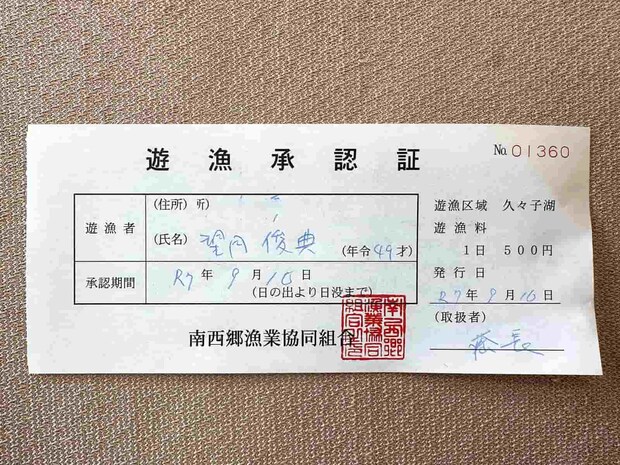 遊漁承認証
№ 01360
遊漁者
(住所) 所
(氏名) 望月 俊典 (年令49才)
承認期間
R7年9月10日
(日の出より日没まで)
南西郷漁業協同組合
南西郷
漁業協同
組合之印
遊漁区域 久々子湖
遊漁料
1日 500円
発行日
R7年9月10日
(取扱者)